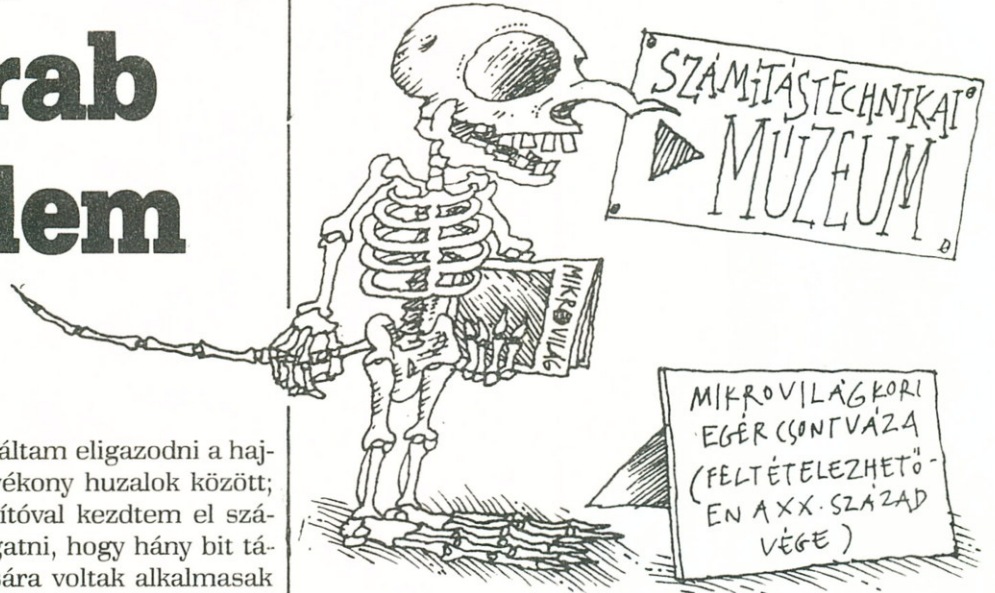 rab
lem
áltam eligazodni a haj-
vékony huzalok között;
ítóval kezdtem el szá-
gatni, hogy hány bit tá-
sára voltak alkalmasak
SZÁMÍTÁSTECHNIKAI
MÚZEUM
MIKROVILÁG
MIKROVILÁGKORI
EGÉR CSONTVÁZA
(FELTÉTELEZHETŐ-
EN A XX. SZÁZAD
VÉGE)